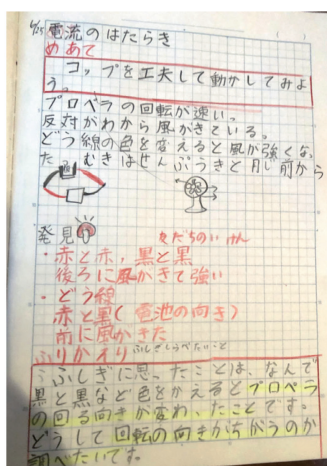 6/25 電流のはたらき
めあて
コップを工夫して動かしてみよ
う。
プロペラの回転が速い。
反対がわから風がきている。
どう線の色を変えると風が強くな
た。むきはせんぷうきと同じ前から
発見
友だちのいけん
・赤と赤,黒と黒
後ろに風がきて強い
・どう線
赤と黒(電池の向き)
前に風がきた
ふりかえり ふしぎしらべたいこと
ふしぎに思ったことは、なんで
黒と黒など色をかえるとプロペラ
の回る向きが変わったことです。
どうして回転の向きがちがうのか
調べたいです。